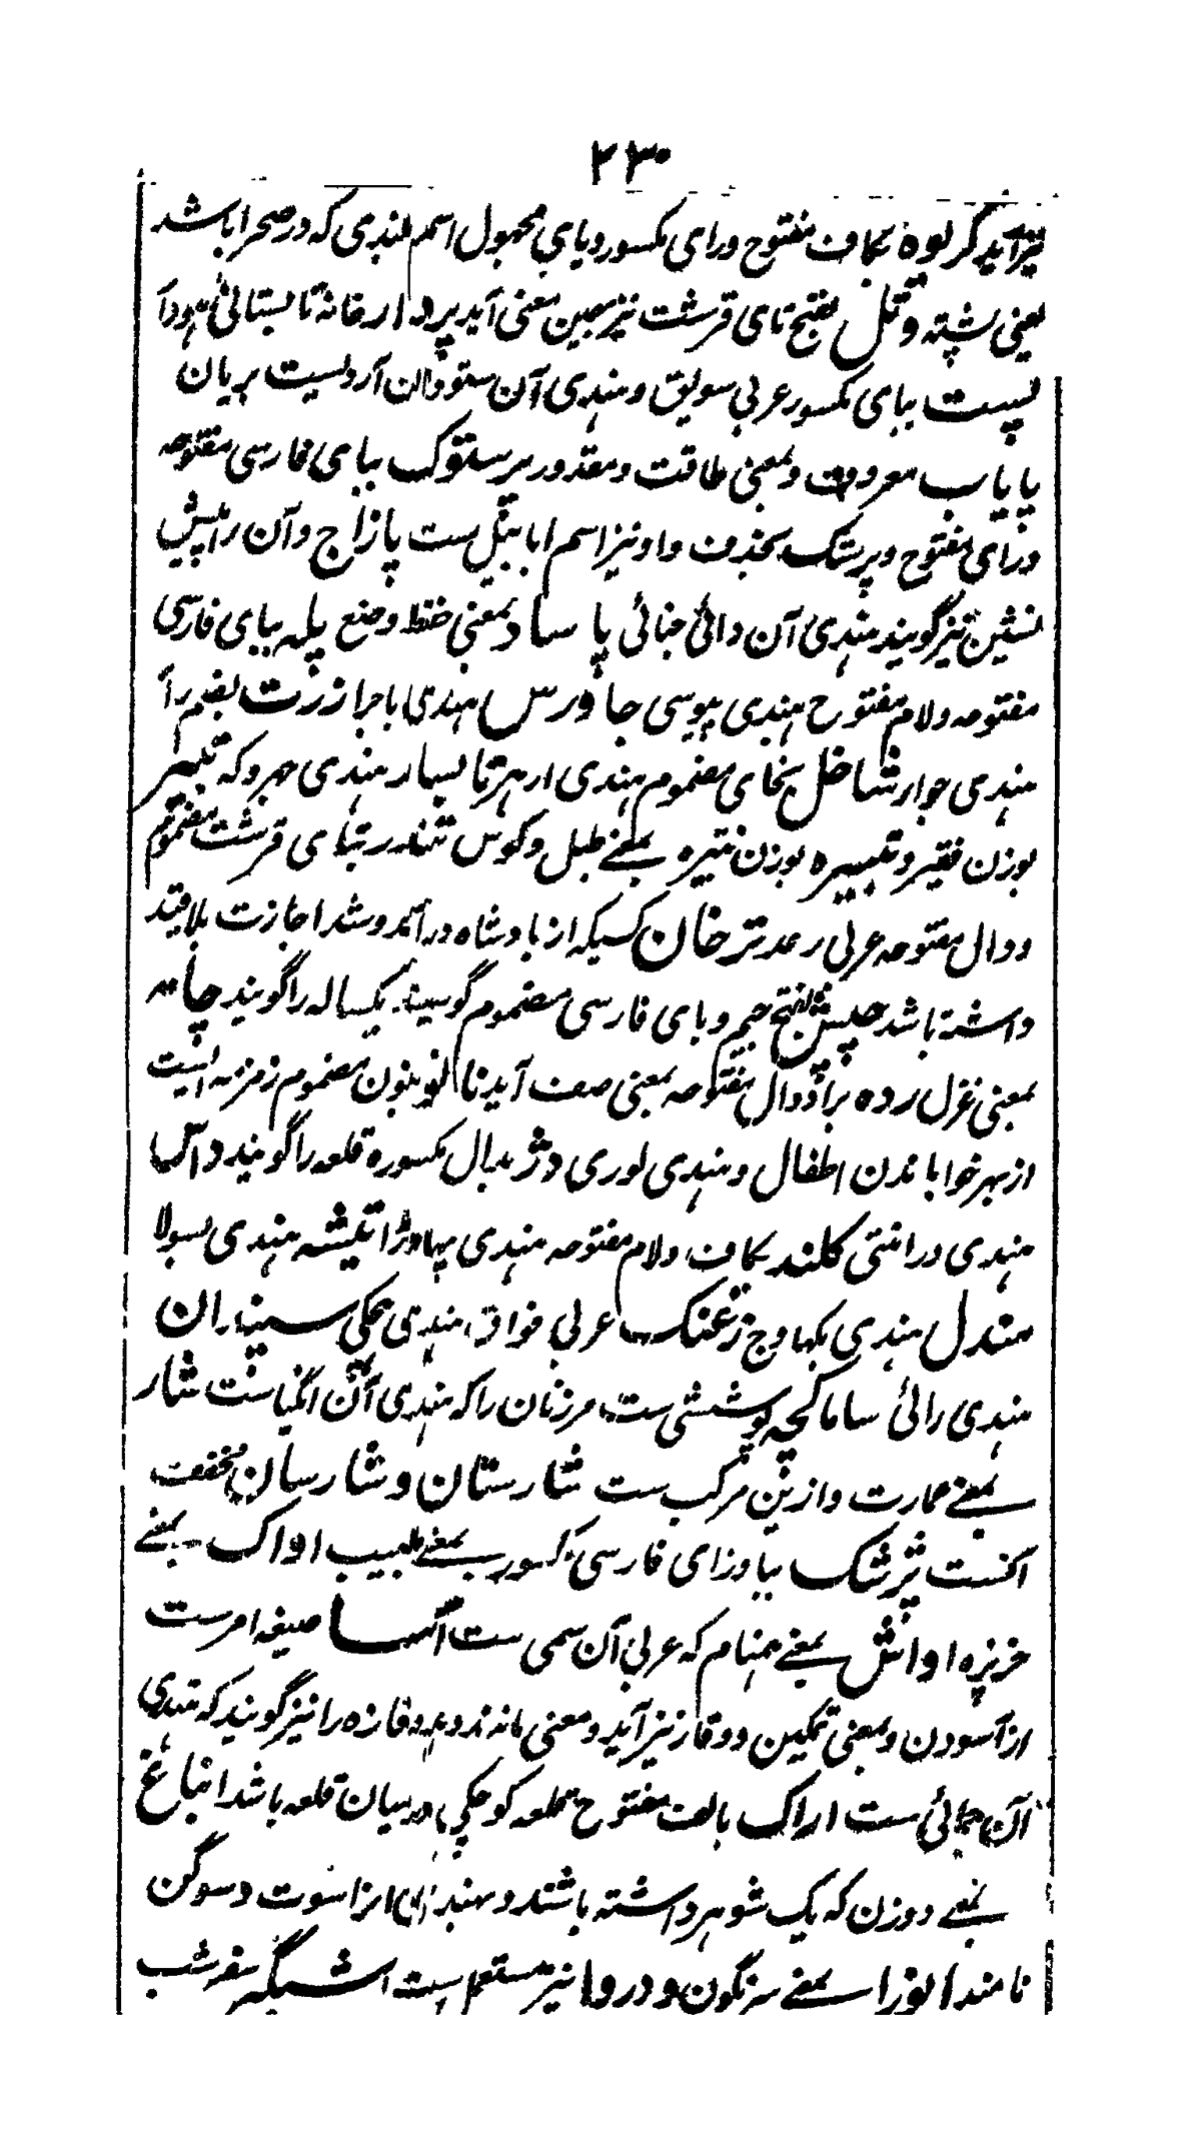 ۲۳۰
نیز آید گریوه بکاف مفتوح ورای مکسور ویای مجهول اسم بلندی که در صحرا باشد
یعنی پشته و تل بفتح تای قرشت نیز بهمین معنی آید پروار خانه تابستانی
پست ببای مکسور عربی سویق و هندی آن ستو وان آردیست بریان
پایاب معروف و بمعنی طاقت و مقدور پرستوک ببای فارسی مفتوحه
ورای مفتوح و پرستک بحذف واو نیز اسم ابابیل ست پازاج وآن را پیش
نشین نیز گویند هندی آن دائی جنائی پاساد بمعنی حفظ وضع پله ببای فارسی
مفتوحه ولام مفتوح هندی پیوسی جاورس هندی باجرا زرت بضم را
هندی جوار شاخل بخای مضموم هندی ارهر تابسار هندی جهروکه تبیر
بوزن فقیر و تبیره بوزن نتیره بمعنے طبل و کوس تندر بتای قرشت مضموم
ودال مفتوحه عربی رعد ترخان کسیکه از بادشاه در آمد و شد اجازت بلا قید
داشته باشد چپش بفتح جیم وبای فارسی مضموم گوسپند یکساله را گویند چامه
بمعنی غزل رده برا ودال مفتوحه بمعنی صف آید نانو بنون مضموم زمزمه ایست
از بهر خوابانیدن اطفال و هندی لوری دژ بدال مکسوره قلعه را گویند داس
هندی درانتی کلند بکاف ولام مفتوحه هندی پهاوڑا تیشه هندی بسولا
مندل هندی پکهاوج زغنک عربی فواق هندی هچکی سپندان
هندی رائی ساماکچه پوششی ست مرزنان را که هندی آن انگیاست شار
بمعنے عمارت وازین مرکب ست شارستان و شارسان مخفف
آنست پزشک ببا وزای فارسی مکسور بمعنے طبیب اواک بمعنے
جزیره اواش بمعنے همنام که عربی آن سمی ست آسا صیغه امرست
از آسودن و بمعنی تمکین و وقار نیز آید و معنی مانند دهد وفازه را نیز گویند که هندی
آن جمائی ست ارک بالف مفتوح قلعه کوچکی در میان قلعه باشد انباغ
بمعنے دو زن که یک شوهر داشته باشند و بهندی آنرا سوت و سوکن
نامند اندروا بمعنے سرنگون و دروا نیز مستعمل ست